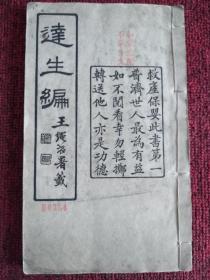 救產保嬰此書第一
普濟世人最為有益
如不閱看幸勿輕擲
轉送他人亦是功德
達生編